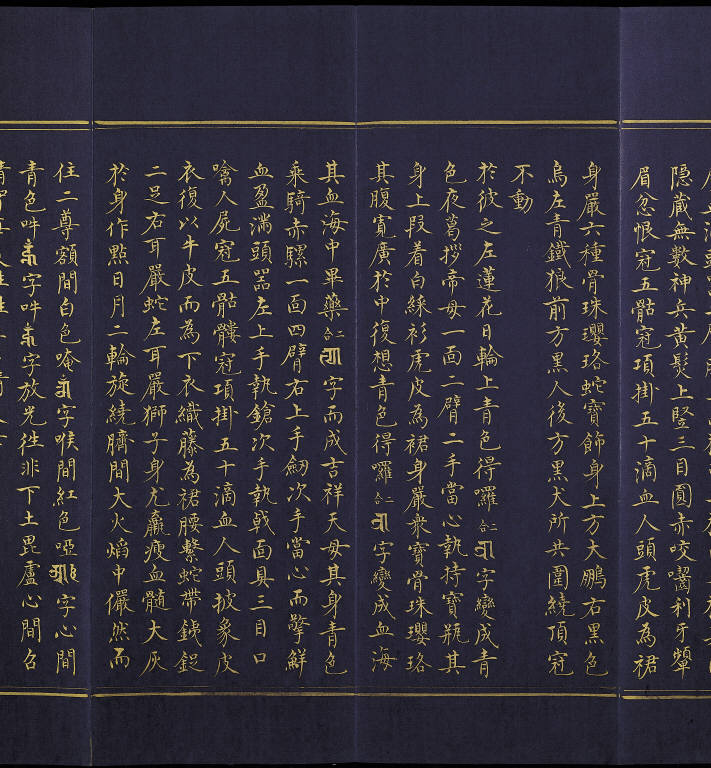 隱藏無數神兵黃髮上豎三目圓赤咬嚙利牙顰
眉忿恨冠五骷冠項掛五十滴血人頭虎皮為裙
身嚴六種骨珠瓔珞蛇寶飾身上方大鵬右黑色
烏左青鐵狼前方黑人後方黑犬所共圍繞頂冠
不動
於彼之左蓮花日輪上青色得囉二合字變成青
色夜葛拶帝母一面二臂二手當心執持寶瓶其
身上段着白綵衫虎皮為裙身嚴衆寶骨珠瓔珞
其腹寬廣於中復想青色得囉二合字變成血海
其血海中畢藥二合字而成吉祥天母其身青色
乘騎赤騾一面四臂右上手劒次手當心而擎鮮
血盈滿頭器左上手執鎗次手執戟面具三目口
噙人屍冠五骷髏冠項掛五十滴血人頭披象皮
衣復以牛皮而為下衣織藤為裙腰繫蛇帶鐵釳
二足右耳嚴蛇左耳嚴獅子身尢羸瘦血髓大灰
於身作點日月二輪旋繞臍間大火焰中儼然而
住二尊額間白色唵字喉間紅色啞字心間
青色吽字吽字放光徃非下土毘盧心間召